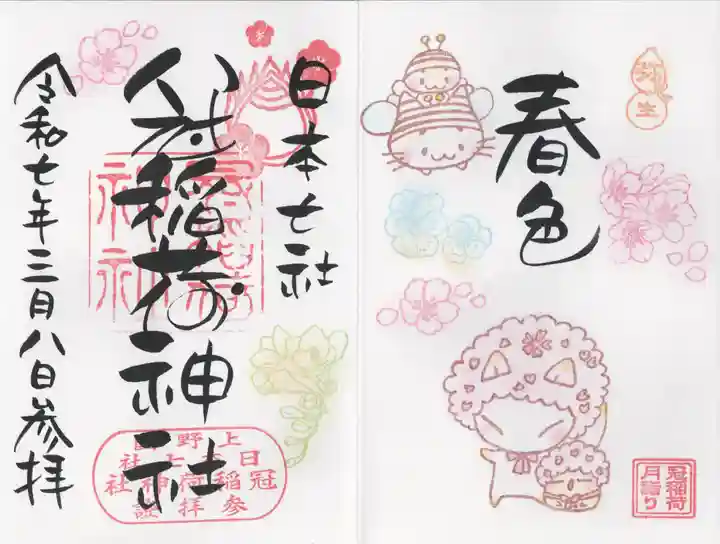 春色
弥生
冠稲荷
月詣り
日本七社
冠稲荷神社
令和七年三月八日参拝
上野国
冠稲荷神社
参拝証